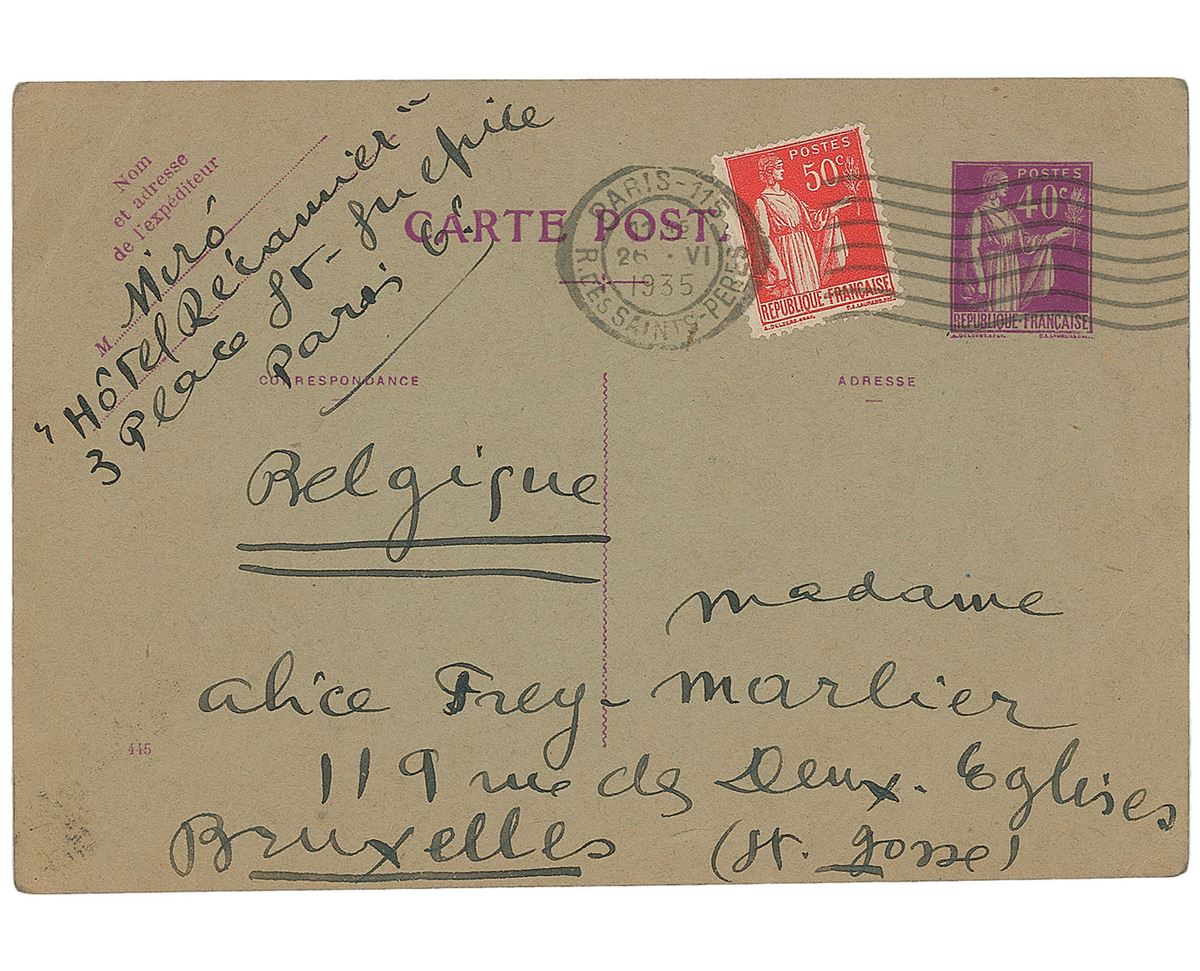 Nom
et adresse
de l'expéditeur
M. Miró
"Hôtel Récamier"
3 Place St-Sulpice
Paris 6e
CARTE POST.
PARIS-115
26 · VI
1935
R. DES SAINTS-PÈRES
POSTES
50c
RÉPUBLIQUE-FRANÇAISE
POSTES
40c
RÉPUBLIQUE-FRANÇAISE
CORRESPONDANCE
ADRESSE
Belgique
madame
alice Frey-marlier
119 rue des Deux. Eglises
Bruxelles (St. Josse)
445